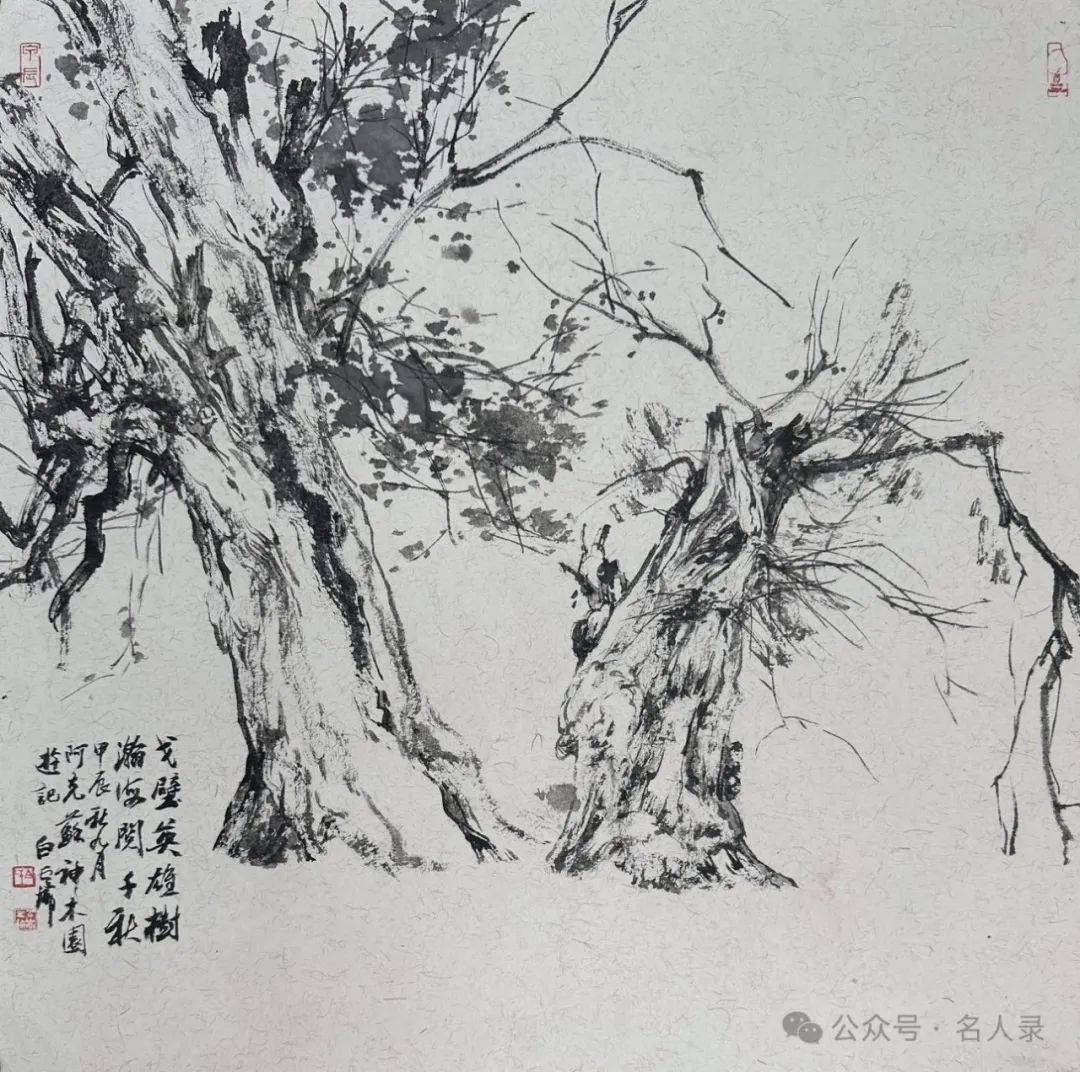 戈壁英雄樹
瀚海閱千秋
甲辰秋九月
阿克蘇神木園
遊記 白
公众号 · 名人录